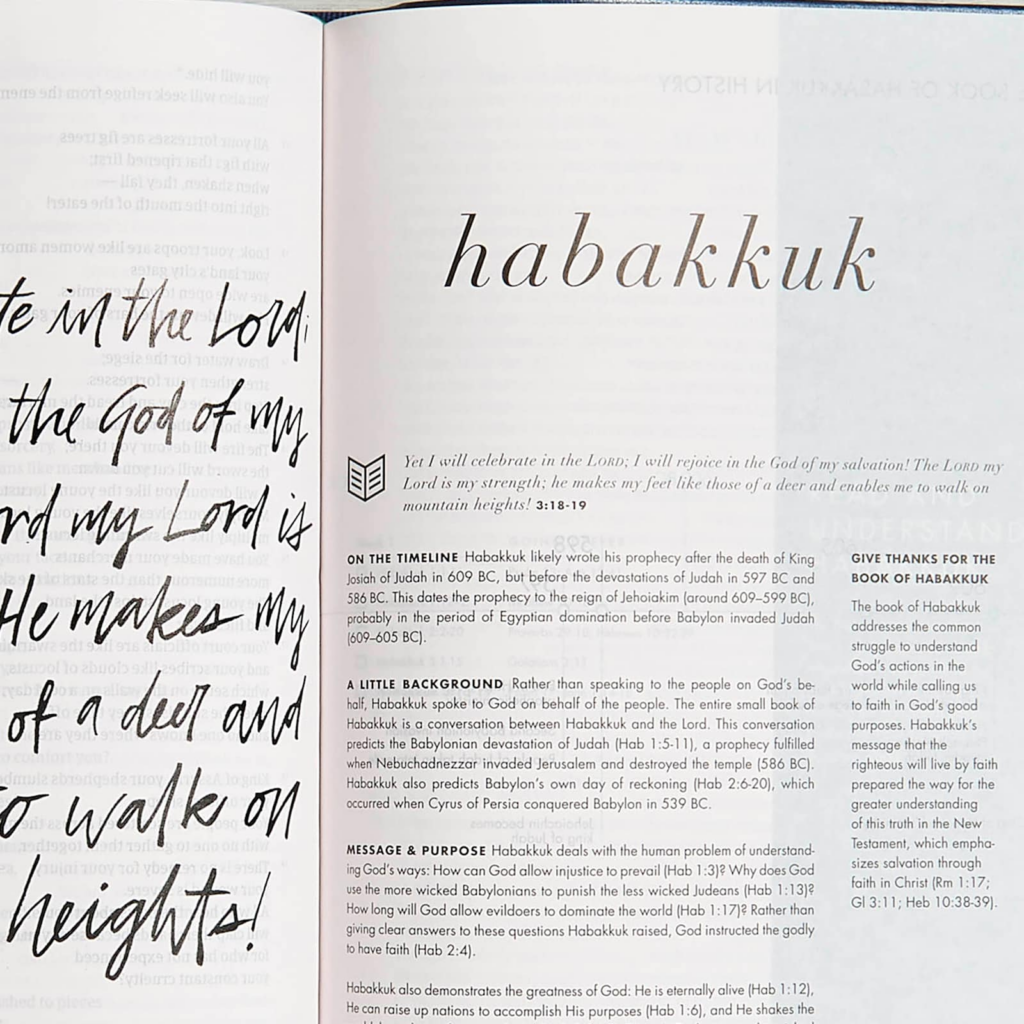 te in the Lord;
the God of my
rd my Lord is
He makes my
of a deer and
to walk on
heights!
habakkuk
Yet I will celebrate in the LORD; I will rejoice in the God of my salvation! The LORD my
Lord is my strength; he makes my feet like those of a deer and enables me to walk on
mountain heights! 3:18-19
ON THE TIMELINE Habakkuk likely wrote his prophecy after the death of King
Josiah of Judah in 609 BC, but before the devastations of Judah in 597 BC and
586 BC. This dates the prophecy to the reign of Jehoiakim (around 609–599 BC),
probably in the period of Egyptian domination before Babylon invaded Judah
(609–605 BC).
A LITTLE BACKGROUND Rather than speaking to the people on God's be-
half, Habakkuk spoke to God on behalf of the people. The entire small book of
Habakkuk is a conversation between Habakkuk and the Lord. This conversation
predicts the Babylonian devastation of Judah (Hab 1:5-11), a prophecy fulfilled
when Nebuchadnezzar invaded Jerusalem and destroyed the temple (586 BC).
Habakkuk also predicts Babylon's own day of reckoning (Hab 2:6-20), which
occurred when Cyrus of Persia conquered Babylon in 539 BC.
MESSAGE & PURPOSE Habakkuk deals with the human problem of understand-
ing God's ways: How can God allow injustice to prevail (Hab 1:3)? Why does God
use the more wicked Babylonians to punish the less wicked Judeans (Hab 1:13)?
How long will God allow evildoers to dominate the world (Hab 1:17)? Rather than
giving clear answers to these questions Habakkuk raised, God instructed the godly
to have faith (Hab 2:4).
Habakkuk also demonstrates the greatness of God: He is eternally alive (Hab 1:12),
He can raise up nations to accomplish His purposes (Hab 1:6), and He shakes the
GIVE THANKS FOR THE
BOOK OF HABAKKUK
The book of Habakkuk
addresses the common
struggle to understand
God's actions in the
world while calling us
to faith in God's good
purposes. Habakkuk's
message that the
righteous will live by faith
prepared the way for the
greater understanding
of this truth in the New
Testament, which empha-
sizes salvation through
faith in Christ (Rm 1:17;
Gl 3:11; Heb 10:38-39).